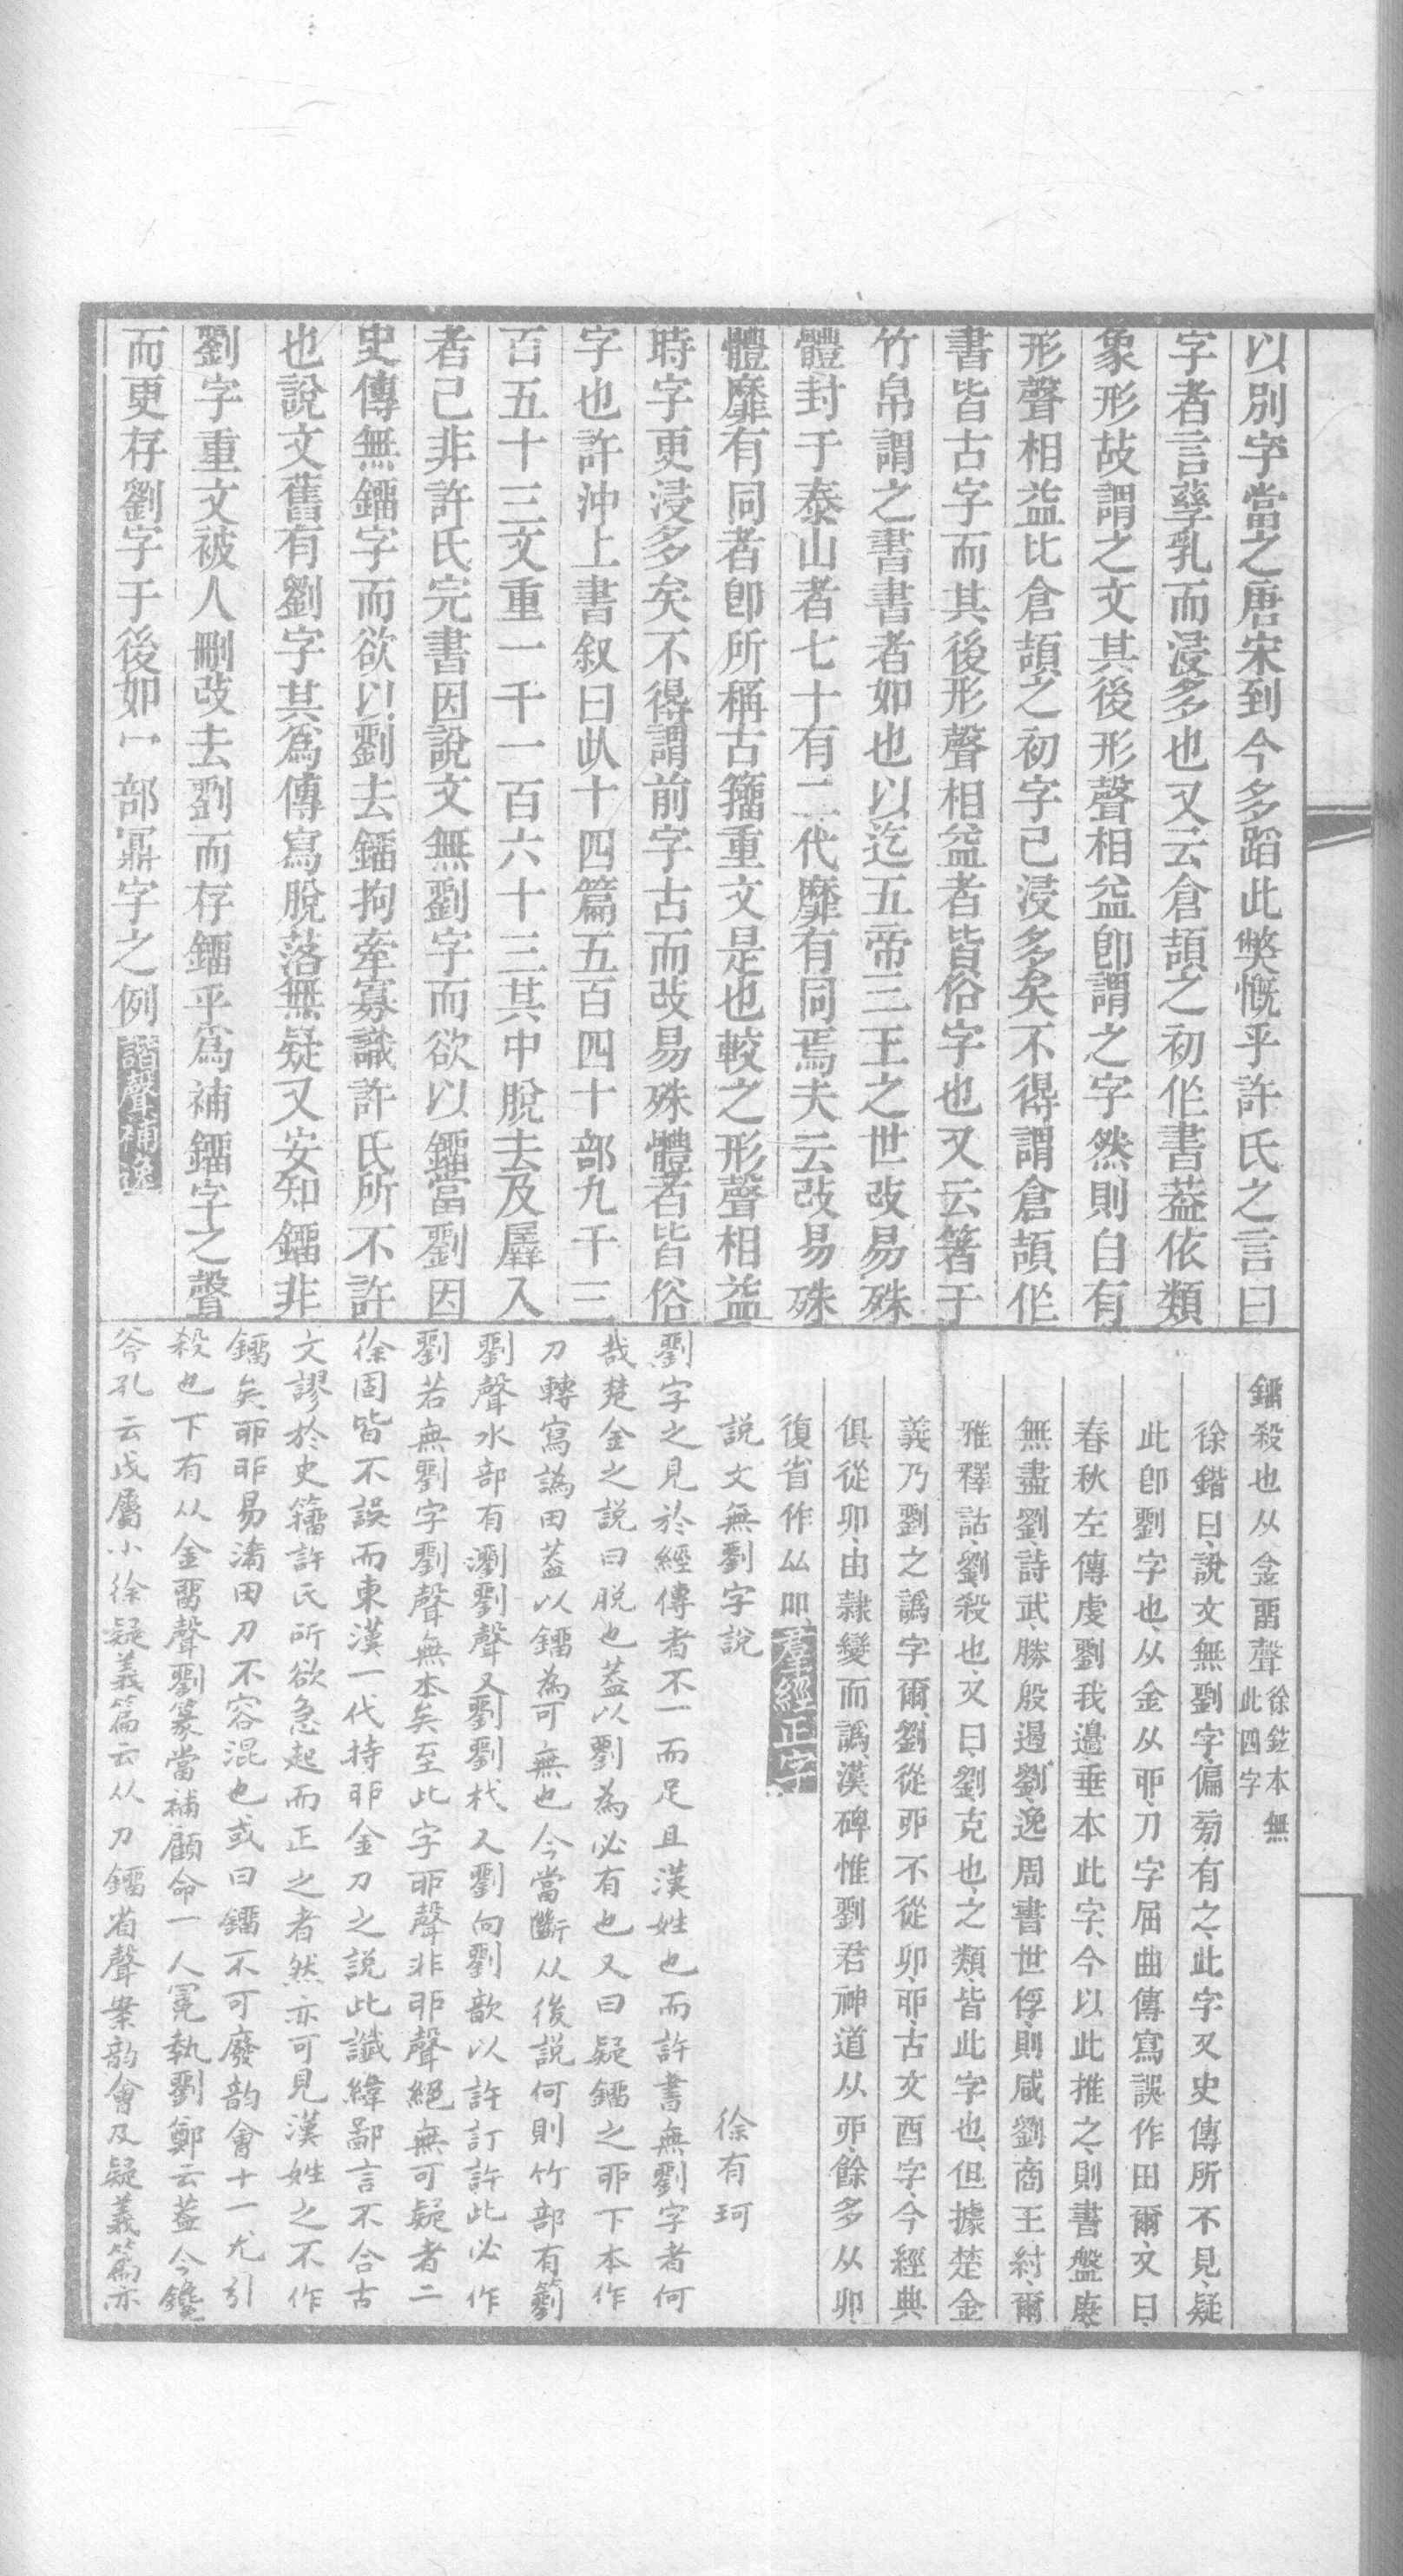 以別字當之唐宋到今多蹈此獘慨乎許氏之言曰
字者言孳乳而浸多也又云倉頡之初作書葢依類
象形故謂之文其後形聲相益卽謂之字然則自有
形聲相益比倉頡之初字已浸多矣不得謂倉頡作
書皆古字而其後形聲相益者皆俗字也又云箸于
竹帛謂之書書者如也以迄五帝三王之世攺易殊
體封于泰山者七十有二代靡有同焉夫云攺易殊
體靡有同者卽所稱古籒重文是也較之形聲相益
時字更浸多矣不得謂前字古而攺易殊體者皆俗
字也許沖上書叙曰此十四篇五百四十部九千三
百五十三文重一千一百六十三其中脫去及羼入
者已非許氏完書因說文無劉字而欲以鐂當劉因
史傳無鐂字而欲以劉去鐂拘牽寡識許氏所不許
也說文舊有劉字其爲傳寫脫落無疑又安知鐂非
劉字重文被人刪攺去劉而存鐂乎爲補鐂字之聲
而更存劉字于後如冖部鼏字之例諧聲補逸
鐂殺也从金畱聲徐鉉本無此四字
徐鍇曰、說文無劉字、偏㫄有之、此字又史傳所不見、疑
此卽劉字也、从金从丣、刀字屈曲傳寫誤作田爾、文曰、
春秋左傳虔劉我邊垂本此字、今以此推之、則書盤庚
無盡劉、詩武、勝殷遏劉、逸周書世俘、則咸劉商王紂、爾
雅釋詁、劉、殺也、又曰、劉、克也、之類、皆此字也、但據楚金
義乃劉之譌字爾、劉從丣不從卯、丣、古文酉字、今經典
俱從卯、由隷變而譌、漢碑惟劉君神道从丣、餘多从卯、
復省作从吅、羣經正字
說文無劉字說
徐有珂
劉字之見於經傳者不一而足且漢姓也而許書無劉字者何
哉楚金之說曰脫也葢以劉為必有也又曰疑鐂之丣下本作
刀轉寫譌田葢以鐂為可無也今當斷从後說何則竹部有籀
劉聲水部有瀏劉聲又劉劉杙又劉向劉歆以許訂許此必作
劉若無劉字劉聲無本矣至此字丣聲非丣聲絕無可疑者二
徐固皆不誤而東漢一代持丣金刀之說此讖緯鄙言不合古
文謬於史籀許氏所欲急起而正之者然亦可見漢姓之不作
鐂矣丣丣易淆田刀不容混也或曰鐂不可廢韵會十一尤引
殺也下有从金畱聲劉篆當補顧命一人冕執劉鄭云葢今鑱
斧孔云戉屬小徐疑義篇云从刀鐂省聲案韵會及疑義篇亦